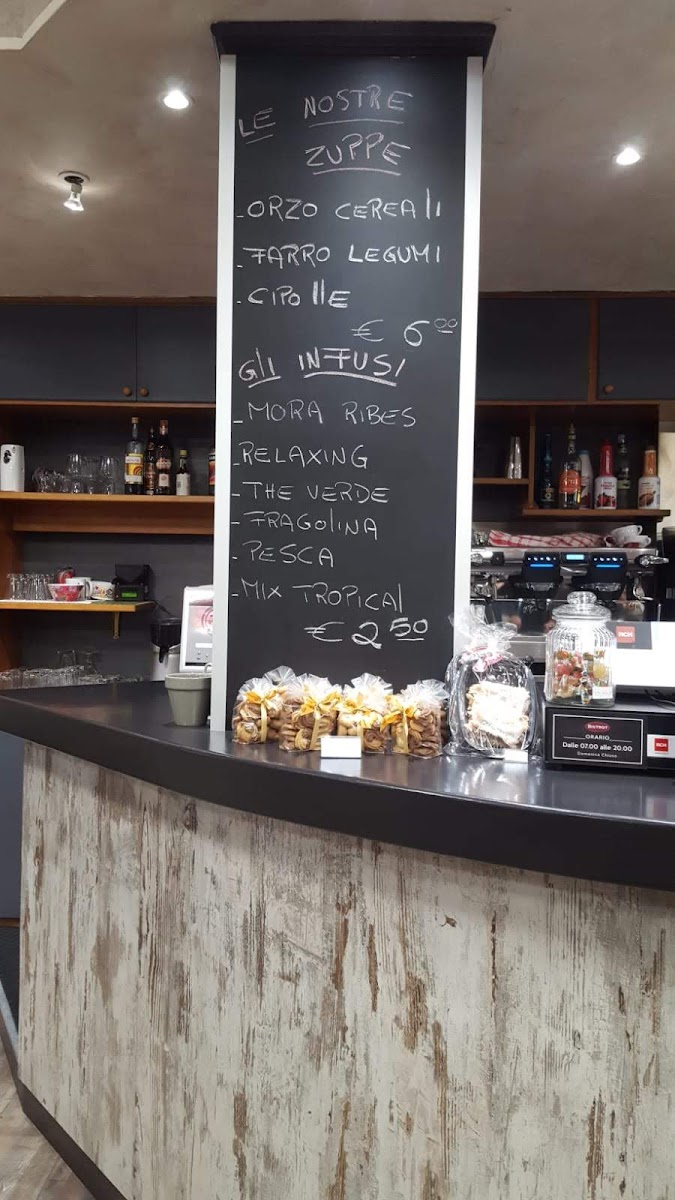 LE NOSTRE
ZUPPE
- ORZO CEREALI
- FARRO LEGUMI
- CIPOLLE
€ 600
GLI INFUSI
- MORA RIBES
- RELAXING
- THE VERDE
- FRAGOLINA
- PESCA
- MIX TROPICAL
€ 250
RCH
BISTROT
ORARIO
Dalle 07.00 alle 20.00
Domenica Chiuso
RCH